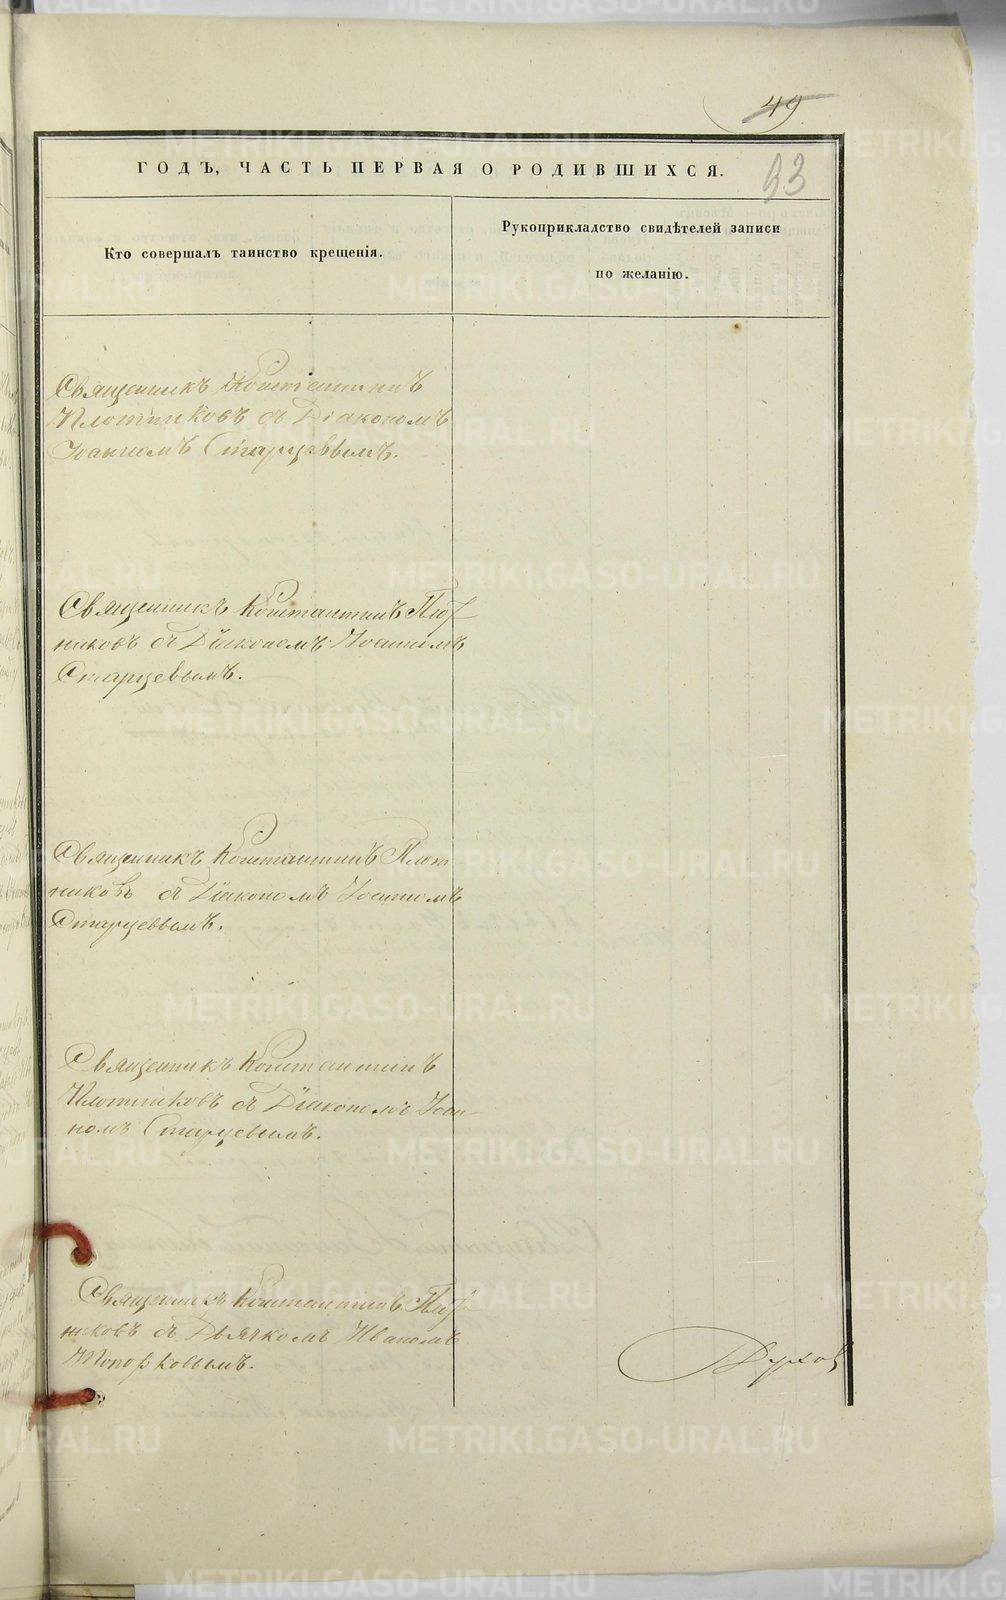 49.
ГОДЪ, ЧАСТЬ ПЕРВАЯ О РОДИВШИХСЯ.
93
Кто совершалъ таинство крещенія.
Рукоприкладство свидѣтелей записи
по желанію.
Священникъ Константинъ
Плотниковъ съ Діакономъ
Іоанномъ Старцевымъ.
Священникъ Константинъ Плот
никовъ съ Діакономъ Іоанномъ
Старцевымъ.
Священникъ Константинъ Плот
никовъ съ Діакономъ Іоанномъ
Старцевымъ.
Священникъ Константинъ
Плотниковъ съ Діакономъ Іоан-
номъ Старцевымъ.
Священникъ Константинъ Плот
никовъ съ Дьячкомъ Иваномъ
Топорковымъ.
Духов
METRIKI.GASO-URAL.RU